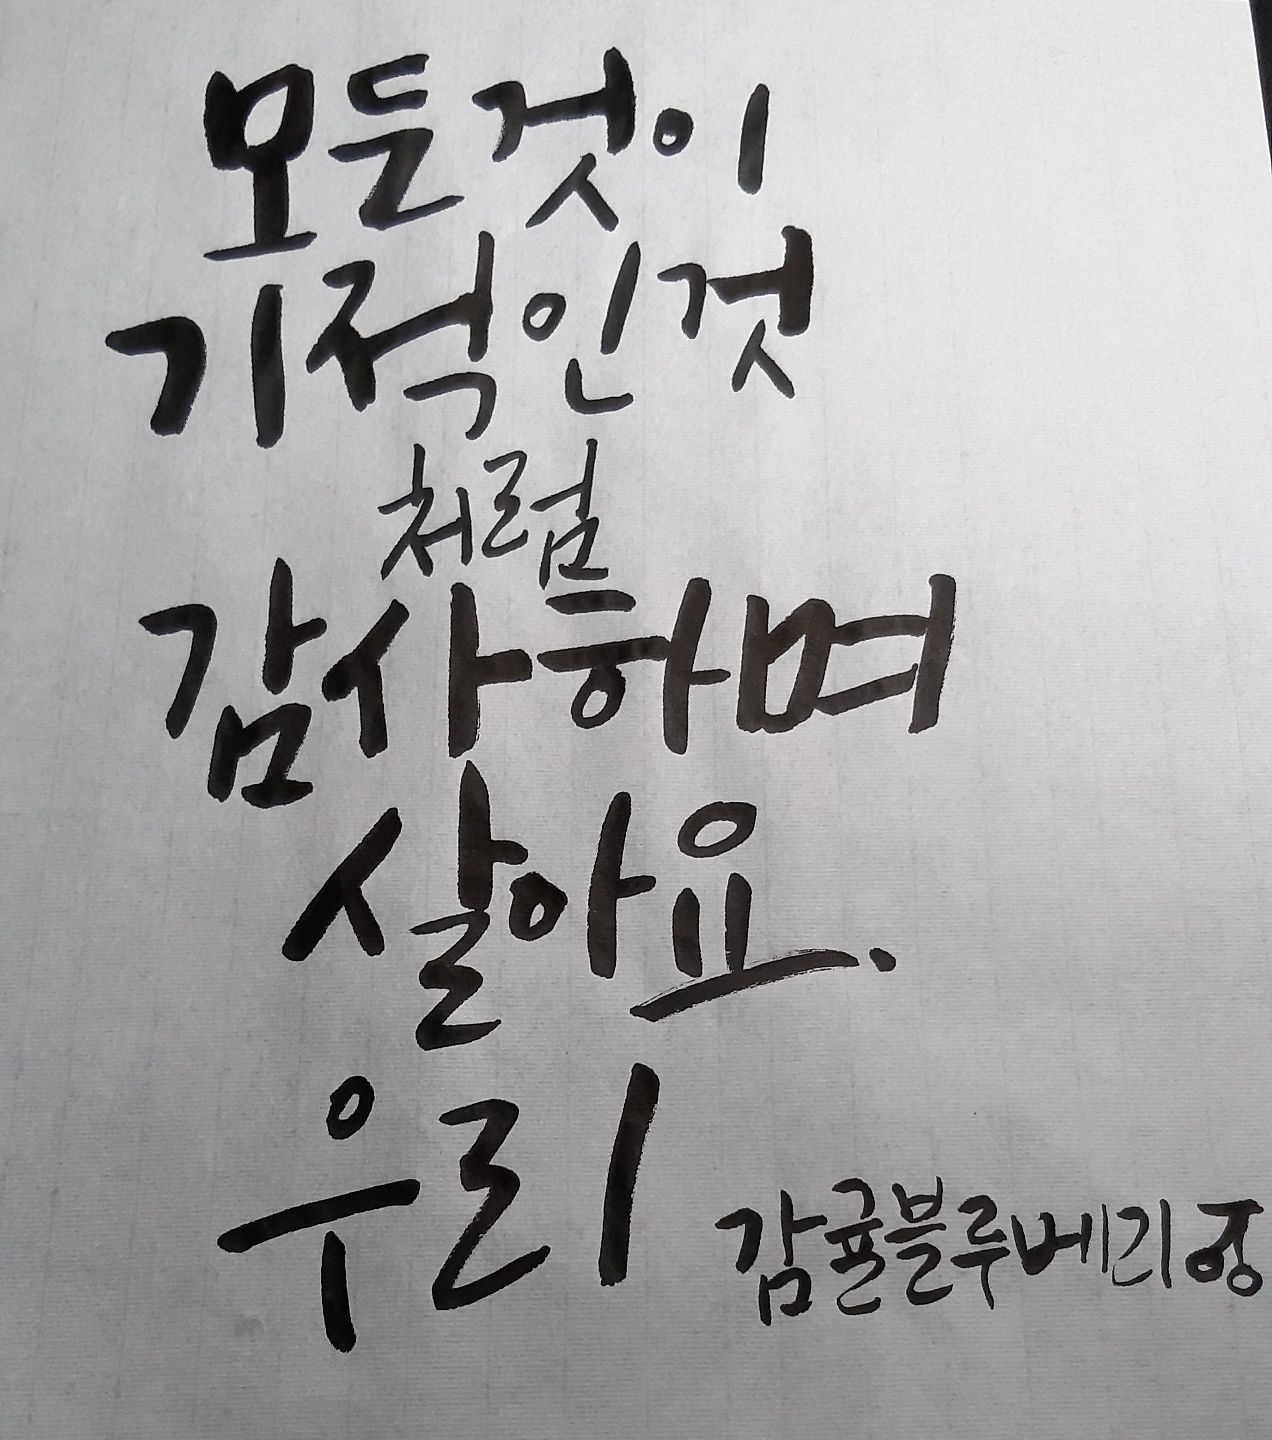 모든것이
기적인것
처럼
감사하며
살아요.
우리
감귤블루베리